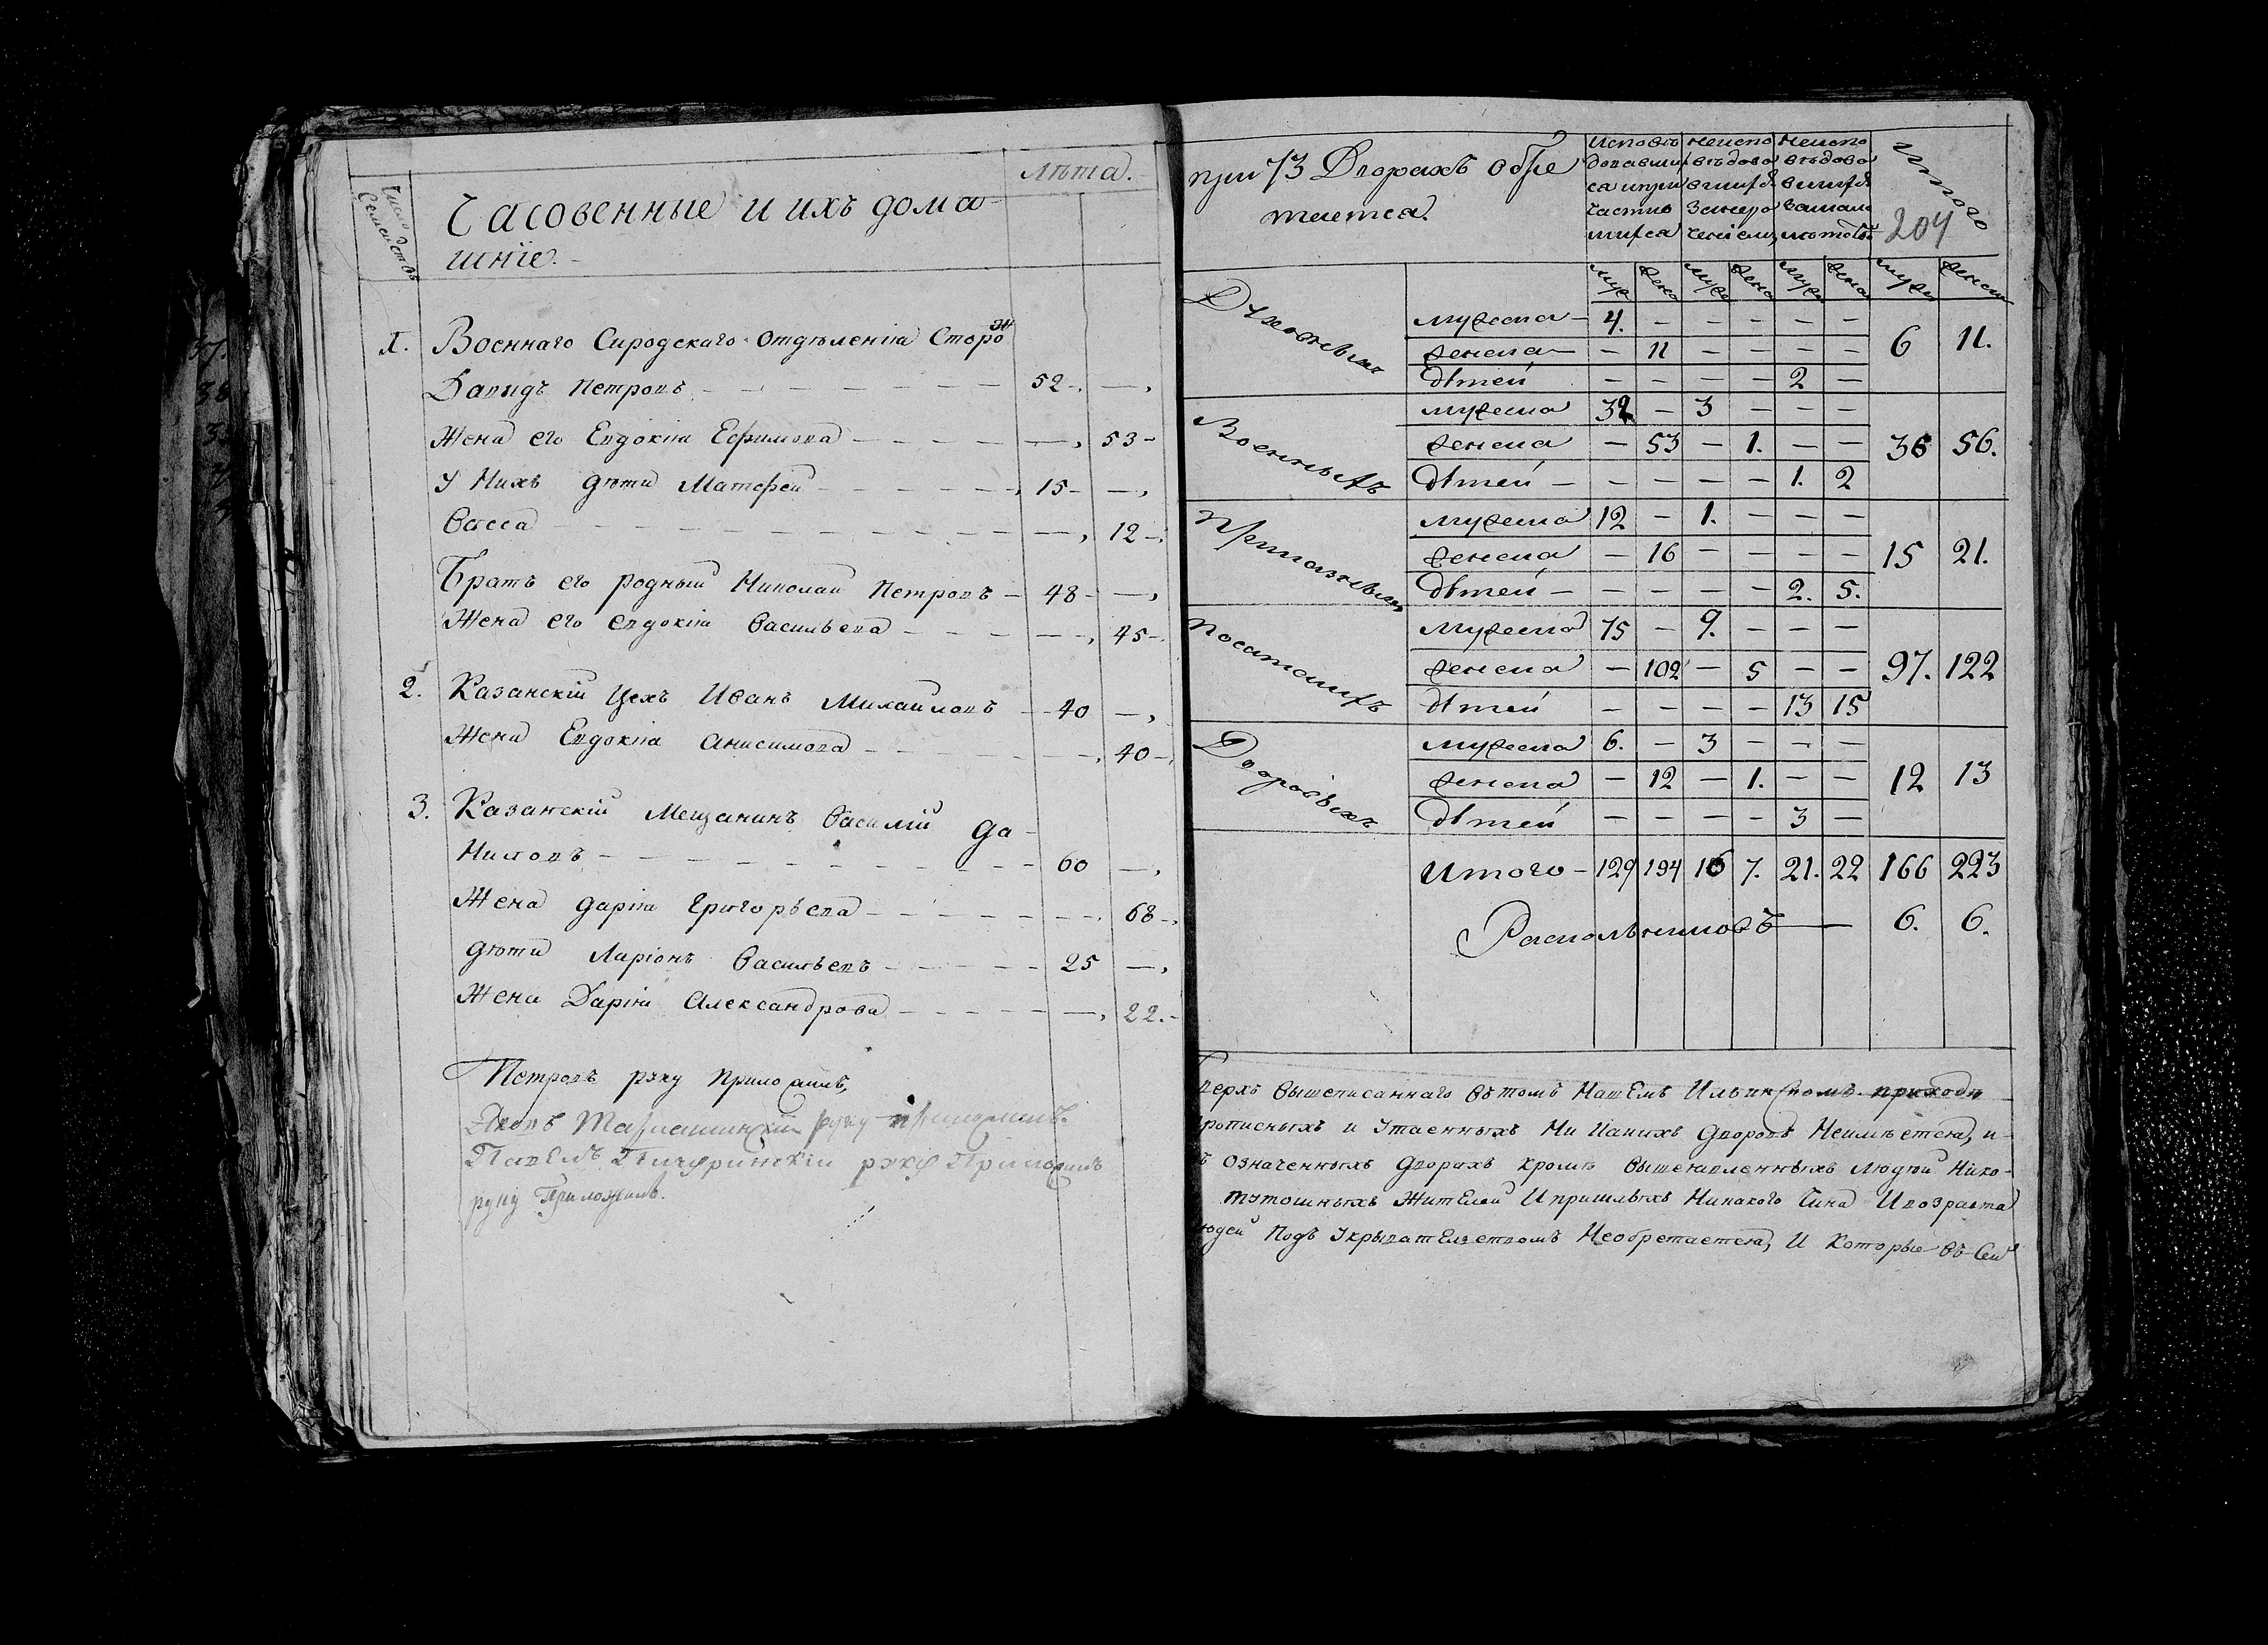 Число Семействъ
Часовенные и ихъ дома-
шніе.
лѣта.
1. Военнаго Сиродскаго отдѣленія Сторо
ж
Давидъ Петровъ 52
Жена его Евдокіа Ефимова 53
У Нихъ дѣти Матѳей 15
Васса 12
Братъ его родный Николай Петровъ 48
Жена его евдокіа Васильева 45
2. Казанскій Цехъ Иванъ Михайловъ 40
Жена Евдокіа анисимова 40
3. Казанскій Мещанинъ Василій да-
ниловъ 60
Жена даріа Григорьева 68
дѣти Ларіонъ Васильевъ 25
Жена Даріа Александрова 22.
Петровъ руку приложилъ,
руку приложилъ.
Павелъ Пичуринскій руку Приложилъ
руку Приложилъ.
при 73 Дворахъ обре
таетса.
Исповѣ
довавши
са и при
частив
шихса
Неиспо
вѣдова
вшихса
Неиспо
вѣдова
вшихса
за мало
лѣтств
итого
204
муж жена муж жена муж жена муж женск
Духовныхъ
мужеска 4. — — — — —
женска — 11 — — — — 6 11.
дѣтей — — — — 2 —
Военныхъ
мужеска 32 — 3 — — —
женска — 53 — 1. — — 36 56.
дѣтей — — — — 1. 2
Приказныхъ
мужеска 12 — 1. — — —
женска — 16 — — — — 15 21.
дѣтей — — — — 2. 5.
Посатскихъ
мужеска 75 — 9. — — —
женска — 102 — 5 — — 97. 122
дѣтей — — — — 13 15
Дворовыхъ
мужеска 6. — 3 — — —
женска — 12 — 1. — — 12 13
дѣтей — — — — 3 —
Итого 129 194 16 7. 21. 22 166 223
Раскольниковъ 6. 6.
верхъ вышеписаннаго въ томъ Нашемъ Ильинскомъ приходѣ
рописныхъ и Утаенныхъ Ни какихъ дворовъ Неимѣетса, и
ъ означенныхъ дворахъ кромѣ вышеявленныхъ людѣй Нико-
тутошныхъ Жителей И пришлыхъ Никакого Чина И возраста
юдей Подъ Укрывательствомъ Необретаетса, И Которые въ Сей